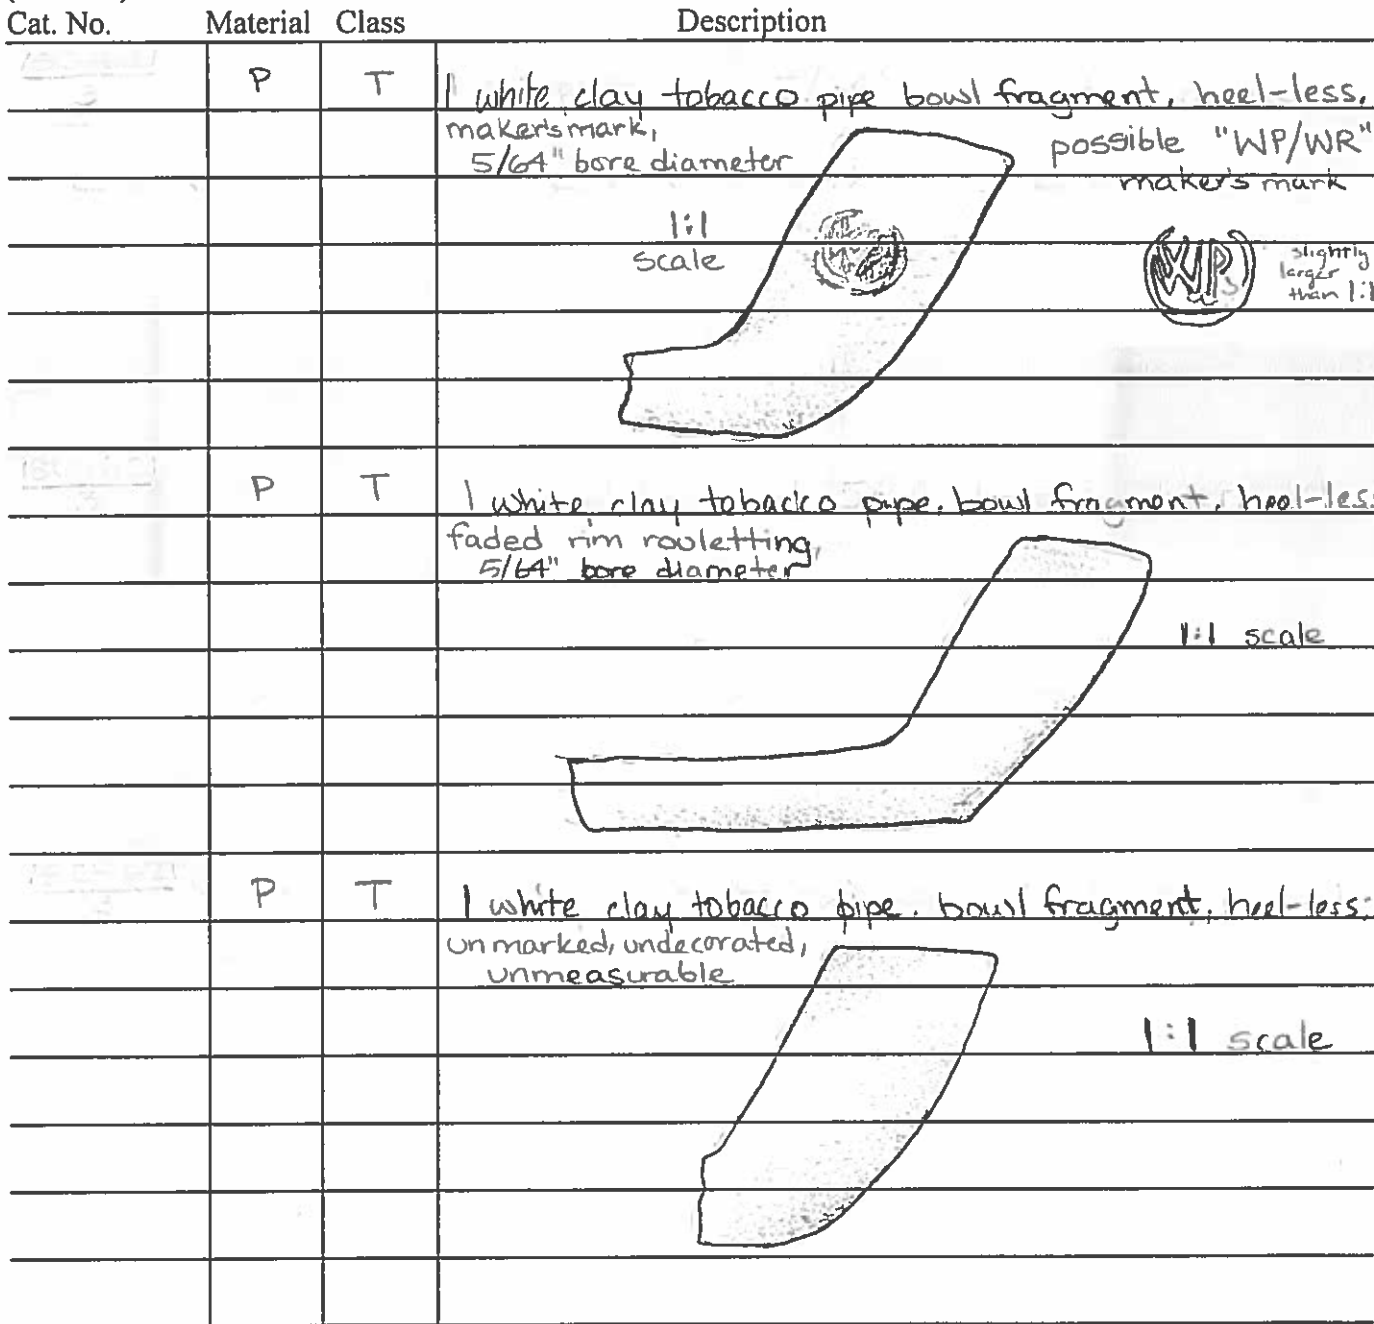 Cat. No. Material Class Description
P T 1 white clay tobacco pipe bowl fragment, heel-less,
makersmark,
5/64" bore diameter
possible "WP/WR"
maker's mark
1:1
scale
WP
slightly
larger
than 1:1
P T 1 white clay tobacco pipe. bowl fragment, heel-less
faded rim rouletting,
5/64" bore diameter
1:1 scale
P T 1 white clay tobacco pipe. bowl fragment, heel-less,
unmarked, undecorated,
unmeasurable
1:1 scale